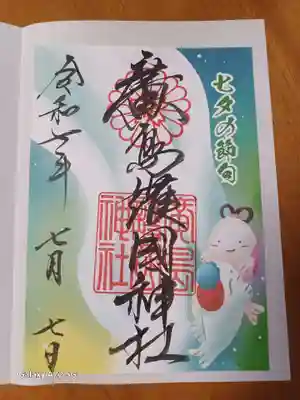 七夕の節句
廣島護國神社
廣島
護國
神社
令和六年
七月
七日
Galaxy